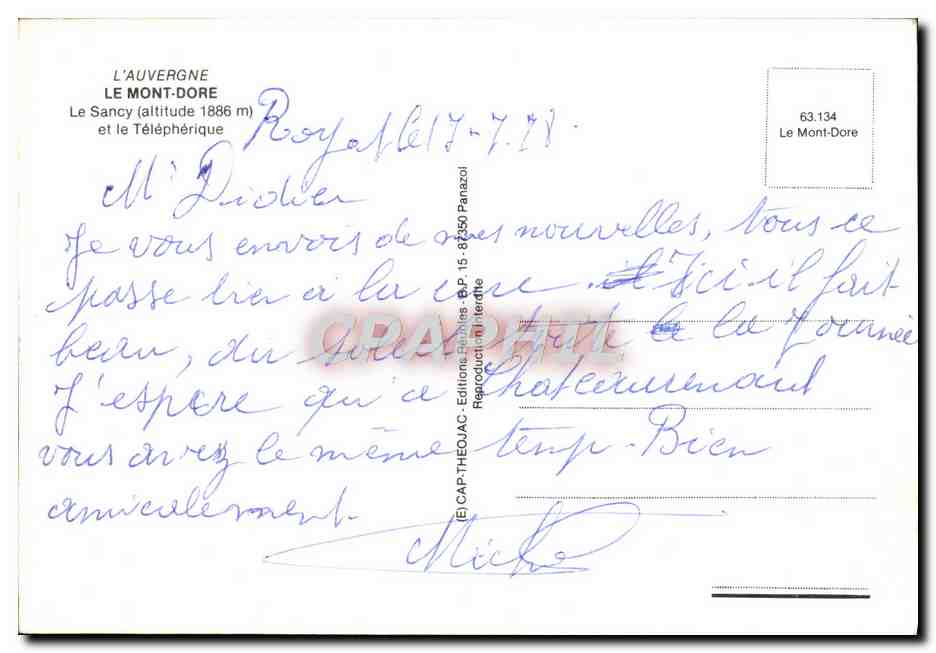 L'AUVERGNE
LE MONT-DORE
Le Sancy (altitude 1886 m)
et le Téléphérique
63.134
Le Mont-Dore
Royat le 17-7.78.
Mr Didier
Je vous envois de mes nouvelles, tous ce
passe bien a la cure. Ici il fait
beau, du soleil toute la Journée
J'espere qu'a Chateaurenard
vous avez le même temp. Bien
amicalement.
Michel
(E) CAP-THEOJAC - Editions Perables - B.P. 15 - 87350 Panazol
Reproduction Interdite
CPAPHIL